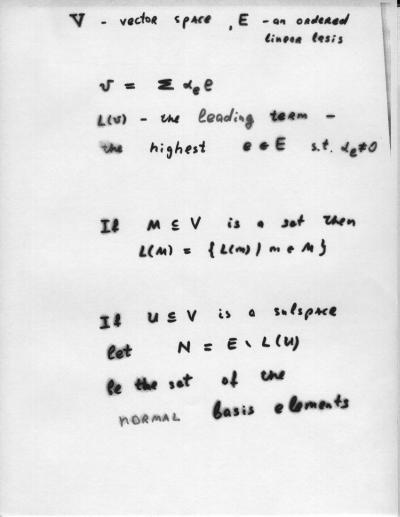 V - vector space, E - an ordered
linear basis
v = Σ αₑe
L(v) - the leading term -
the highest e ∈ E s.t. αₑ≠0
If M ⊆ V is a set then
L(M) = {L(m) | m ∈ M}
If U ⊆ V is a subspace
let N = E \ L(U)
be the set of the
NORMAL basis elements